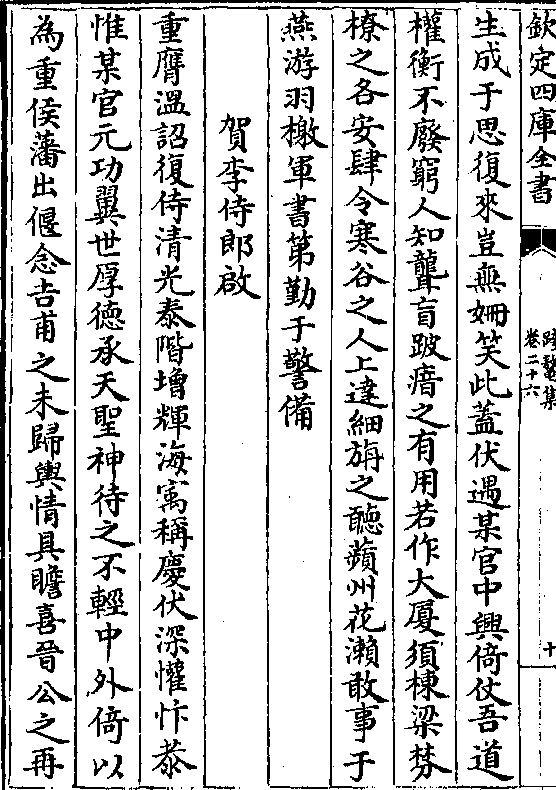 欽定四庫全書
跨鼇集
卷二十六
十
生成于思復來豈無姍笑此蓋伏遇某官中興倚仗吾道
權衡不廢窮人知聾盲跛瘖之有用若作大厦須棟梁棼
橑之各安肆令寒谷之人上達細旃之聽蘋州花瀨敢事于
燕游羽檄軍書第勤于警備
賀李侍郎啟
重膺溫詔復侍清光泰階增輝海寓稱慶伏深懽忭恭
惟某官元功翼世厚德承天聖神待之不輕中外倚以
為重侯藩出偃念吉甫之未歸輿情具瞻喜晉公之再